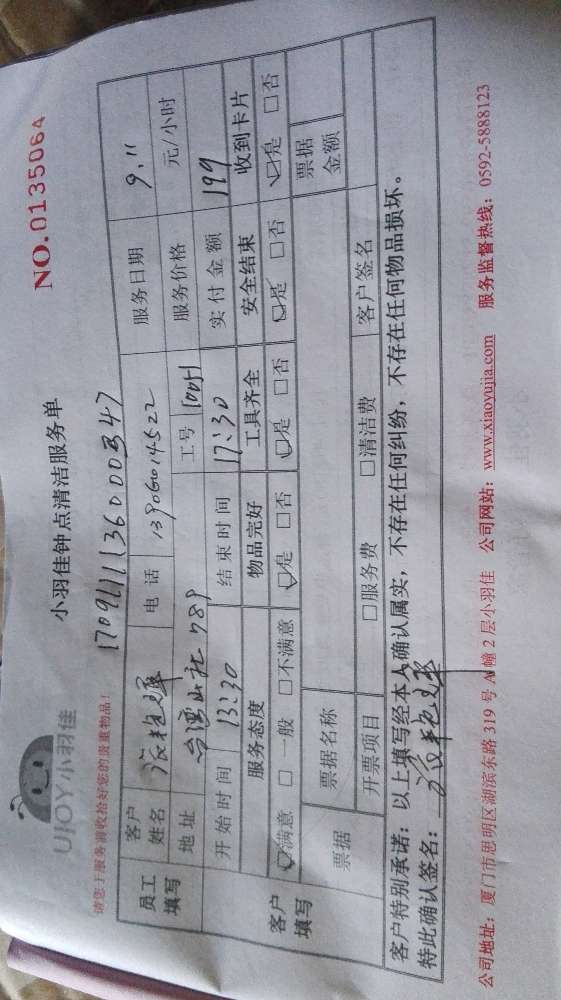 UJOY小羽佳
小羽佳钟点清洁服务单
NO.0135064
请您于服务前收拾好您的贵重物品！
员工填写
客户姓名
电话 13906014522
服务日期 9.11
地址
工号
服务价格 元/小时
开始时间 13:30
结束时间 17:30
实付金额 199
客户填写
服务态度 物品完好 工具齐全 安全结束 收到卡片
☑满意 □一般 □不满意 ☑是 □否 ☑是 □否 ☑是 □否 ☑是 □否
票据
票据名称
票据金额
开票项目 □服务费 □清洁费
客户签名
客户特别承诺：以上填写经本人确认属实，不存在任何纠纷，不存在任何物品损坏。
特此确认签名：
公司地址：厦门市思明区湖滨东路319号A幢2层小羽佳 公司网站：www.xiaoyujia.com 服务监督热线：0592-5888123